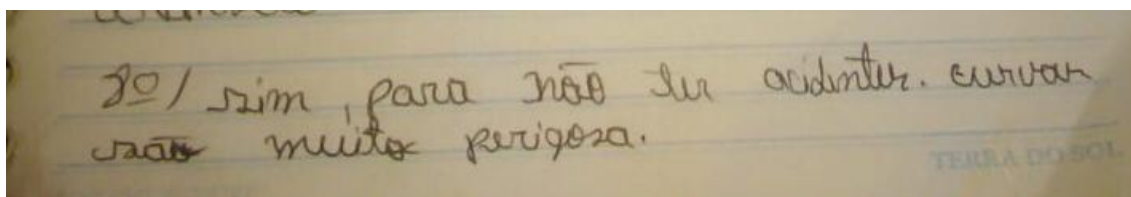 8º/ sim, para não ter acidentes. curvas
são muito perigosa.
TERRA DO SOL